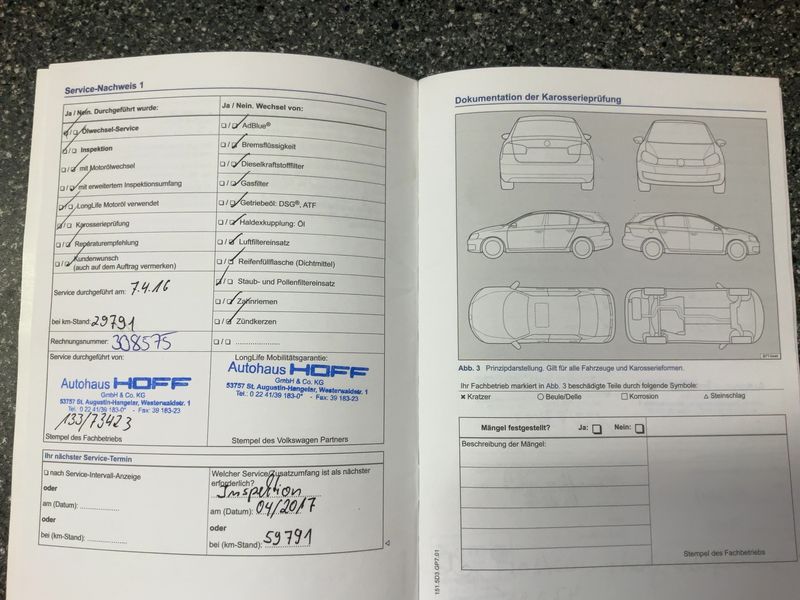 Service-Nachweis 1
Ja / Nein. Durchgeführt wurde:
Ölwechsel-Service
Inspektion
mit Motorölwechsel
mit erweitertem Inspektionsumfang
LongLife Motoröl verwendet
Karosserieprüfung
Reparaturempfehlung
Kundenwunsch
(auch auf dem Auftrag vermerken)
Service durchgeführt am: 7.4.16
bei km-Stand: 29791
Rechnungsnummer: 308575
Service durchgeführt von:
Autohaus HOFF
GmbH & Co. KG
53757 St. Augustin-Hangelar, Westerwaldstr. 1
Tel. 0 22 41/39 183-0* - Fax: 39 183-23
133/73423
Stempel des Fachbetriebs
Ja / Nein. Wechsel von:
AdBlue®
Bremsflüssigkeit
Dieselkraftstofffilter
Gasfilter
Getriebeöl: DSG®, ATF
Haldexkupplung: Öl
Luftfiltereinsatz
Reifenfüllflasche (Dichtmittel)
Staub- und Pollenfiltereinsatz
Zahnriemen
Zündkerzen
LongLife Mobilitätsgarantie:
Autohaus HOFF
GmbH & Co. KG
53757 St. Augustin-Hangelar, Westerwaldstr. 1
Tel. 0 22 41/39 183-0* - Fax: 39 183-23
Stempel des Volkswagen Partners
Ihr nächster Service-Termin
nach Service-Intervall-Anzeige
oder
am (Datum):
oder
bei (km-Stand):
Welcher Service/Zusatzumfang ist als nächster
erforderlich?
Inspektion
am (Datum): 04/2017
oder
bei (km-Stand): 59791
Dokumentation der Karosserieprüfung
Abb. 3 Prinzipdarstellung. Gilt für alle Fahrzeuge und Karosserieformen.
Ihr Fachbetrieb markiert in Abb. 3 beschädigte Teile durch folgende Symbole:
Kratzer Beule/Delle Korrosion Steinschlag
Mängel festgestellt? Ja: Nein:
Beschreibung der Mängel:
Stempel des Fachbetriebs
151.5D3.GP7.01